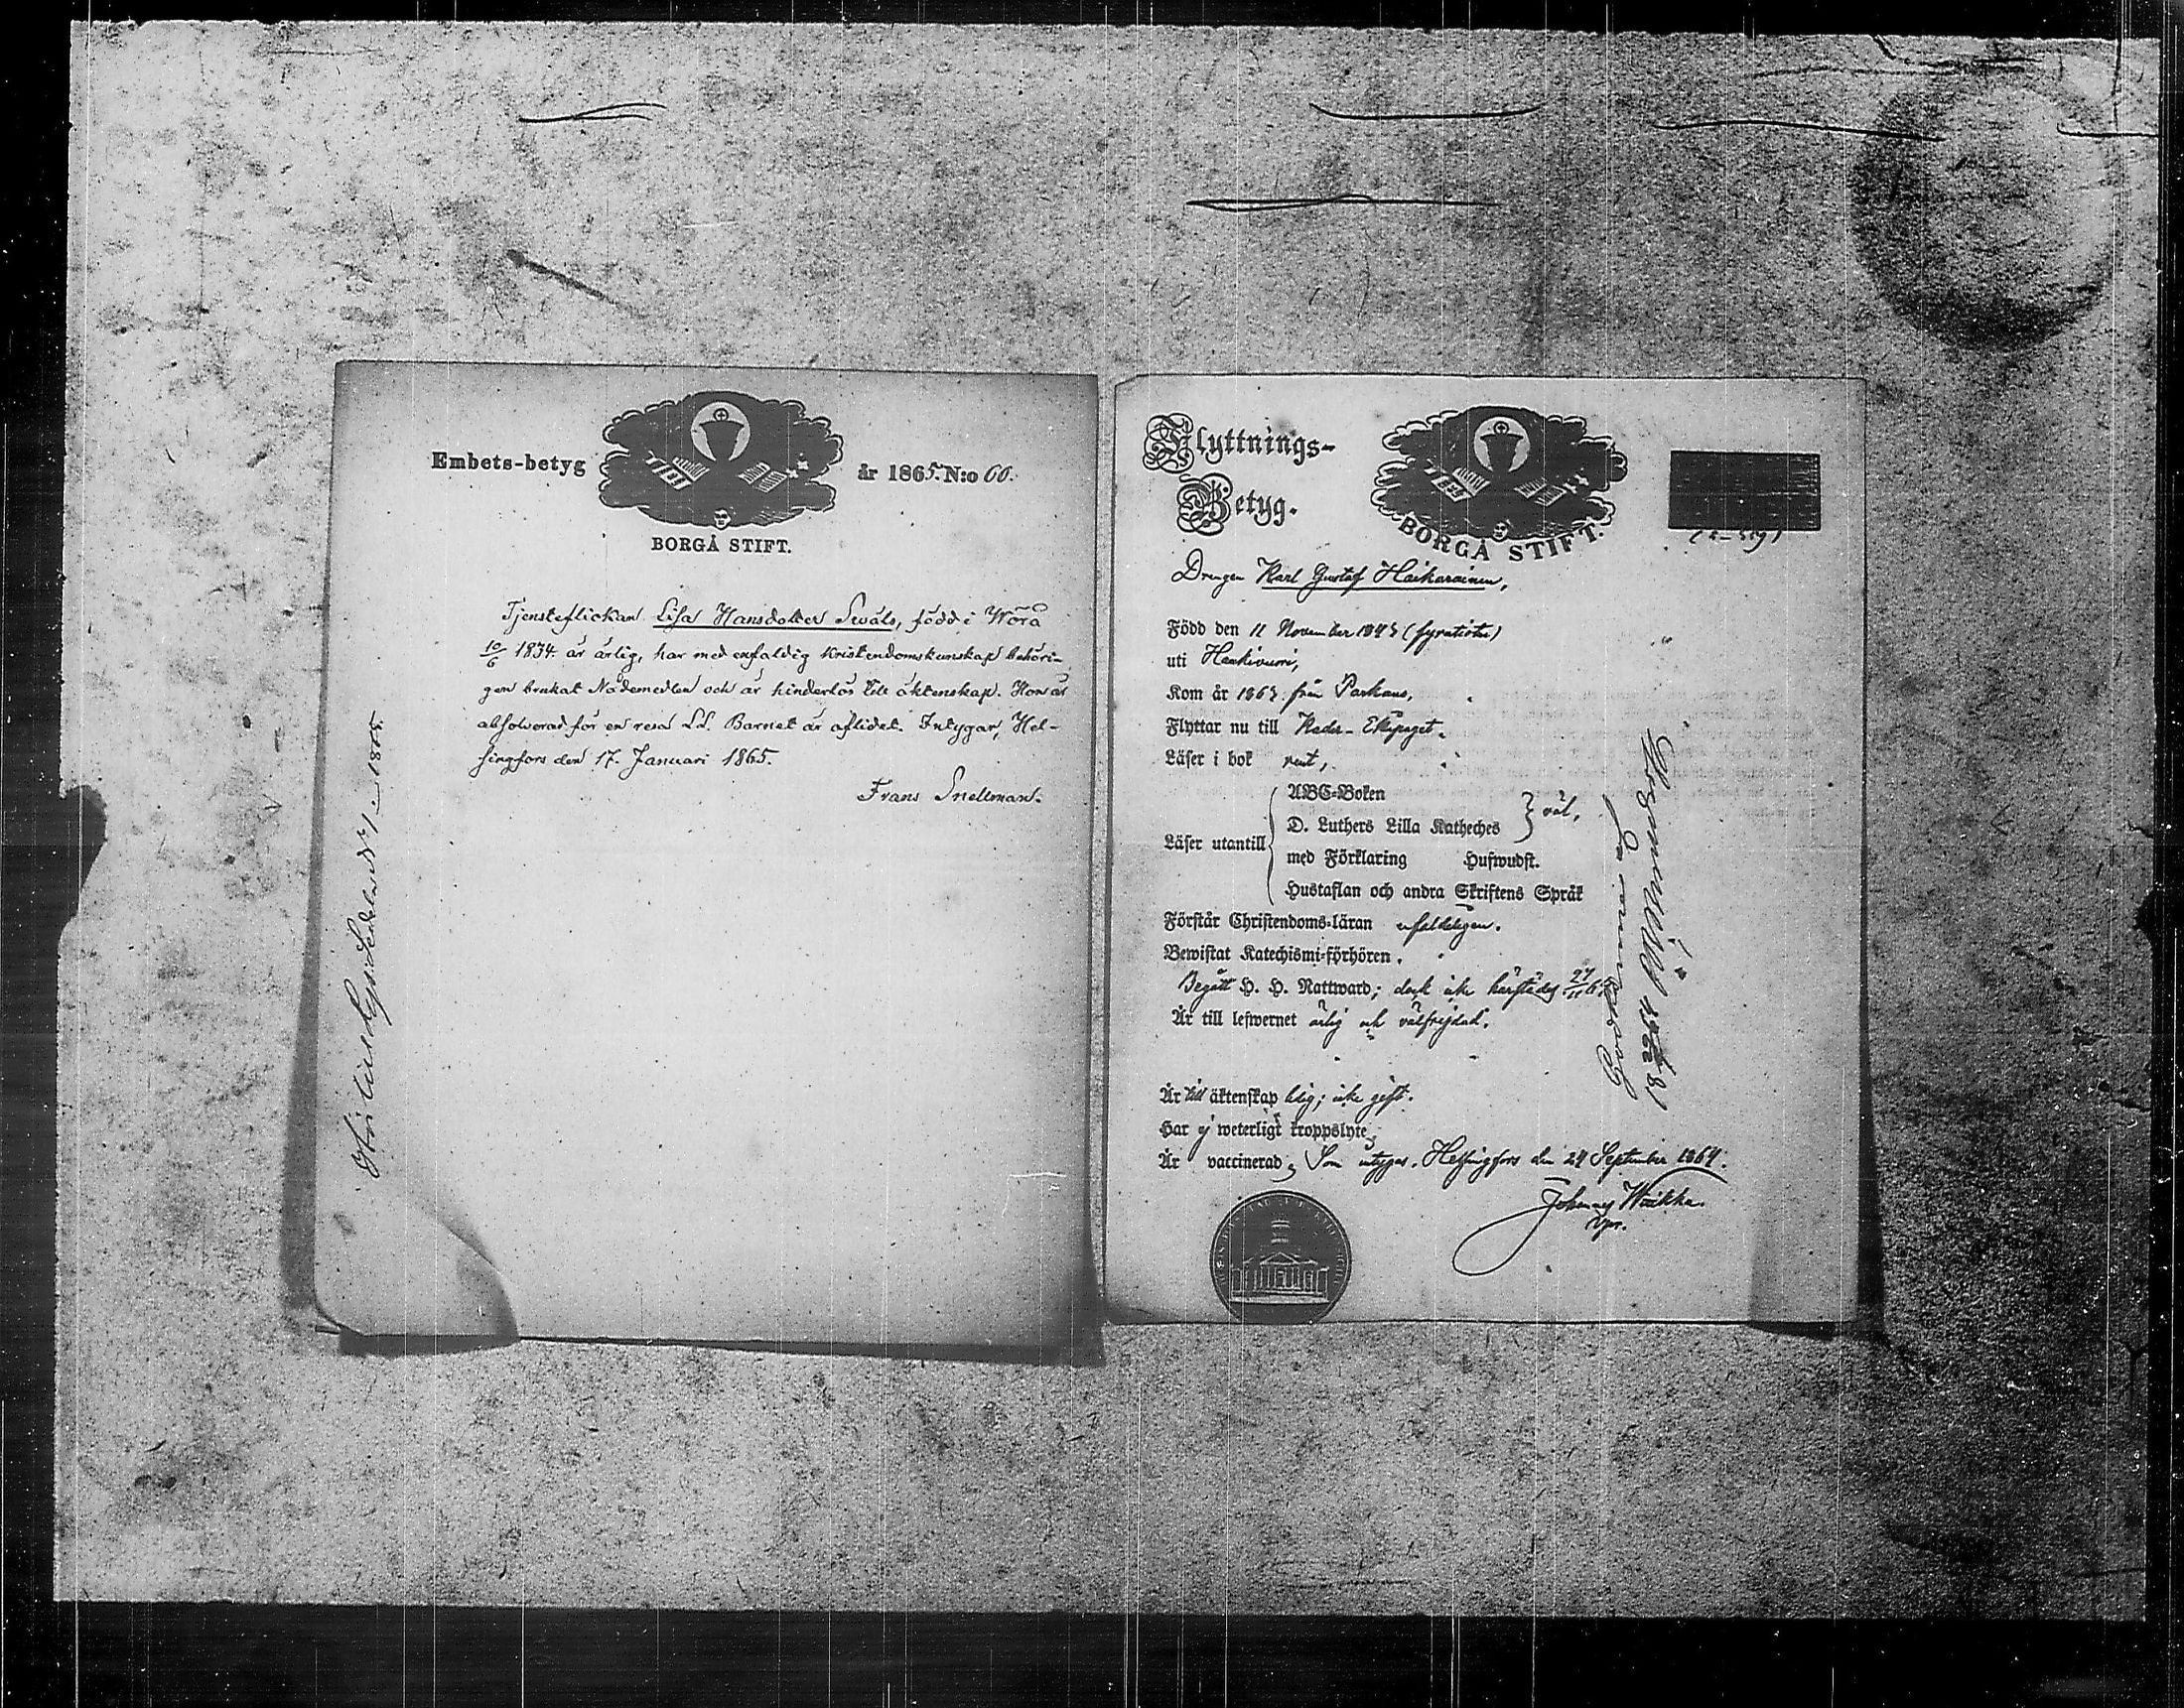 Embets-betyg
år 1865. N:o 60.
BORGÅ STIFT.
Tjensteflickan Lisa Hansdotter Swäls, född i Wörå
10/6 1834. är ärlig, har med enfaldig kristendomskunskap behöri-
gen brukat Nådemedlen och är hinderlös till äktenskap. Hon är
absolverad för en resa LS. Barnet är aflidet. Intygar, Hel-
singfors den 17. Januari 1865.
Frans Snellman.
1865.
Flyttnings-
Betyg.
BORGÅ STIFT.
Drengen Karl Gustaf Haikarainen,
Född den 11 November 1843 (fyratiotre)
uti Haukivuori,
Kom år 1863 från
Flyttar nu till Kader-Ekipaget.
Läser i bok rent,
Läser utantill
ABC-Boken
D. Luthers Lilla Katheches } väl,
med Förklaring Hufwudst.
Hustaflan och andra Skriftens Språk
Förstår Christendoms-läran enfaldeligen.
Bewistat Katechismi-förhören.
Begått H. H. Nattward; dock icke härstädes
Är till lefwernet ärlig och välfrejdad.
Är till äktenskap ledig; icke gift.
Har ej weterligt kroppslyte,
Är vaccinerad, Som intygas. Helsingfors den 24 September 1864.
vpr.
Godkännes af